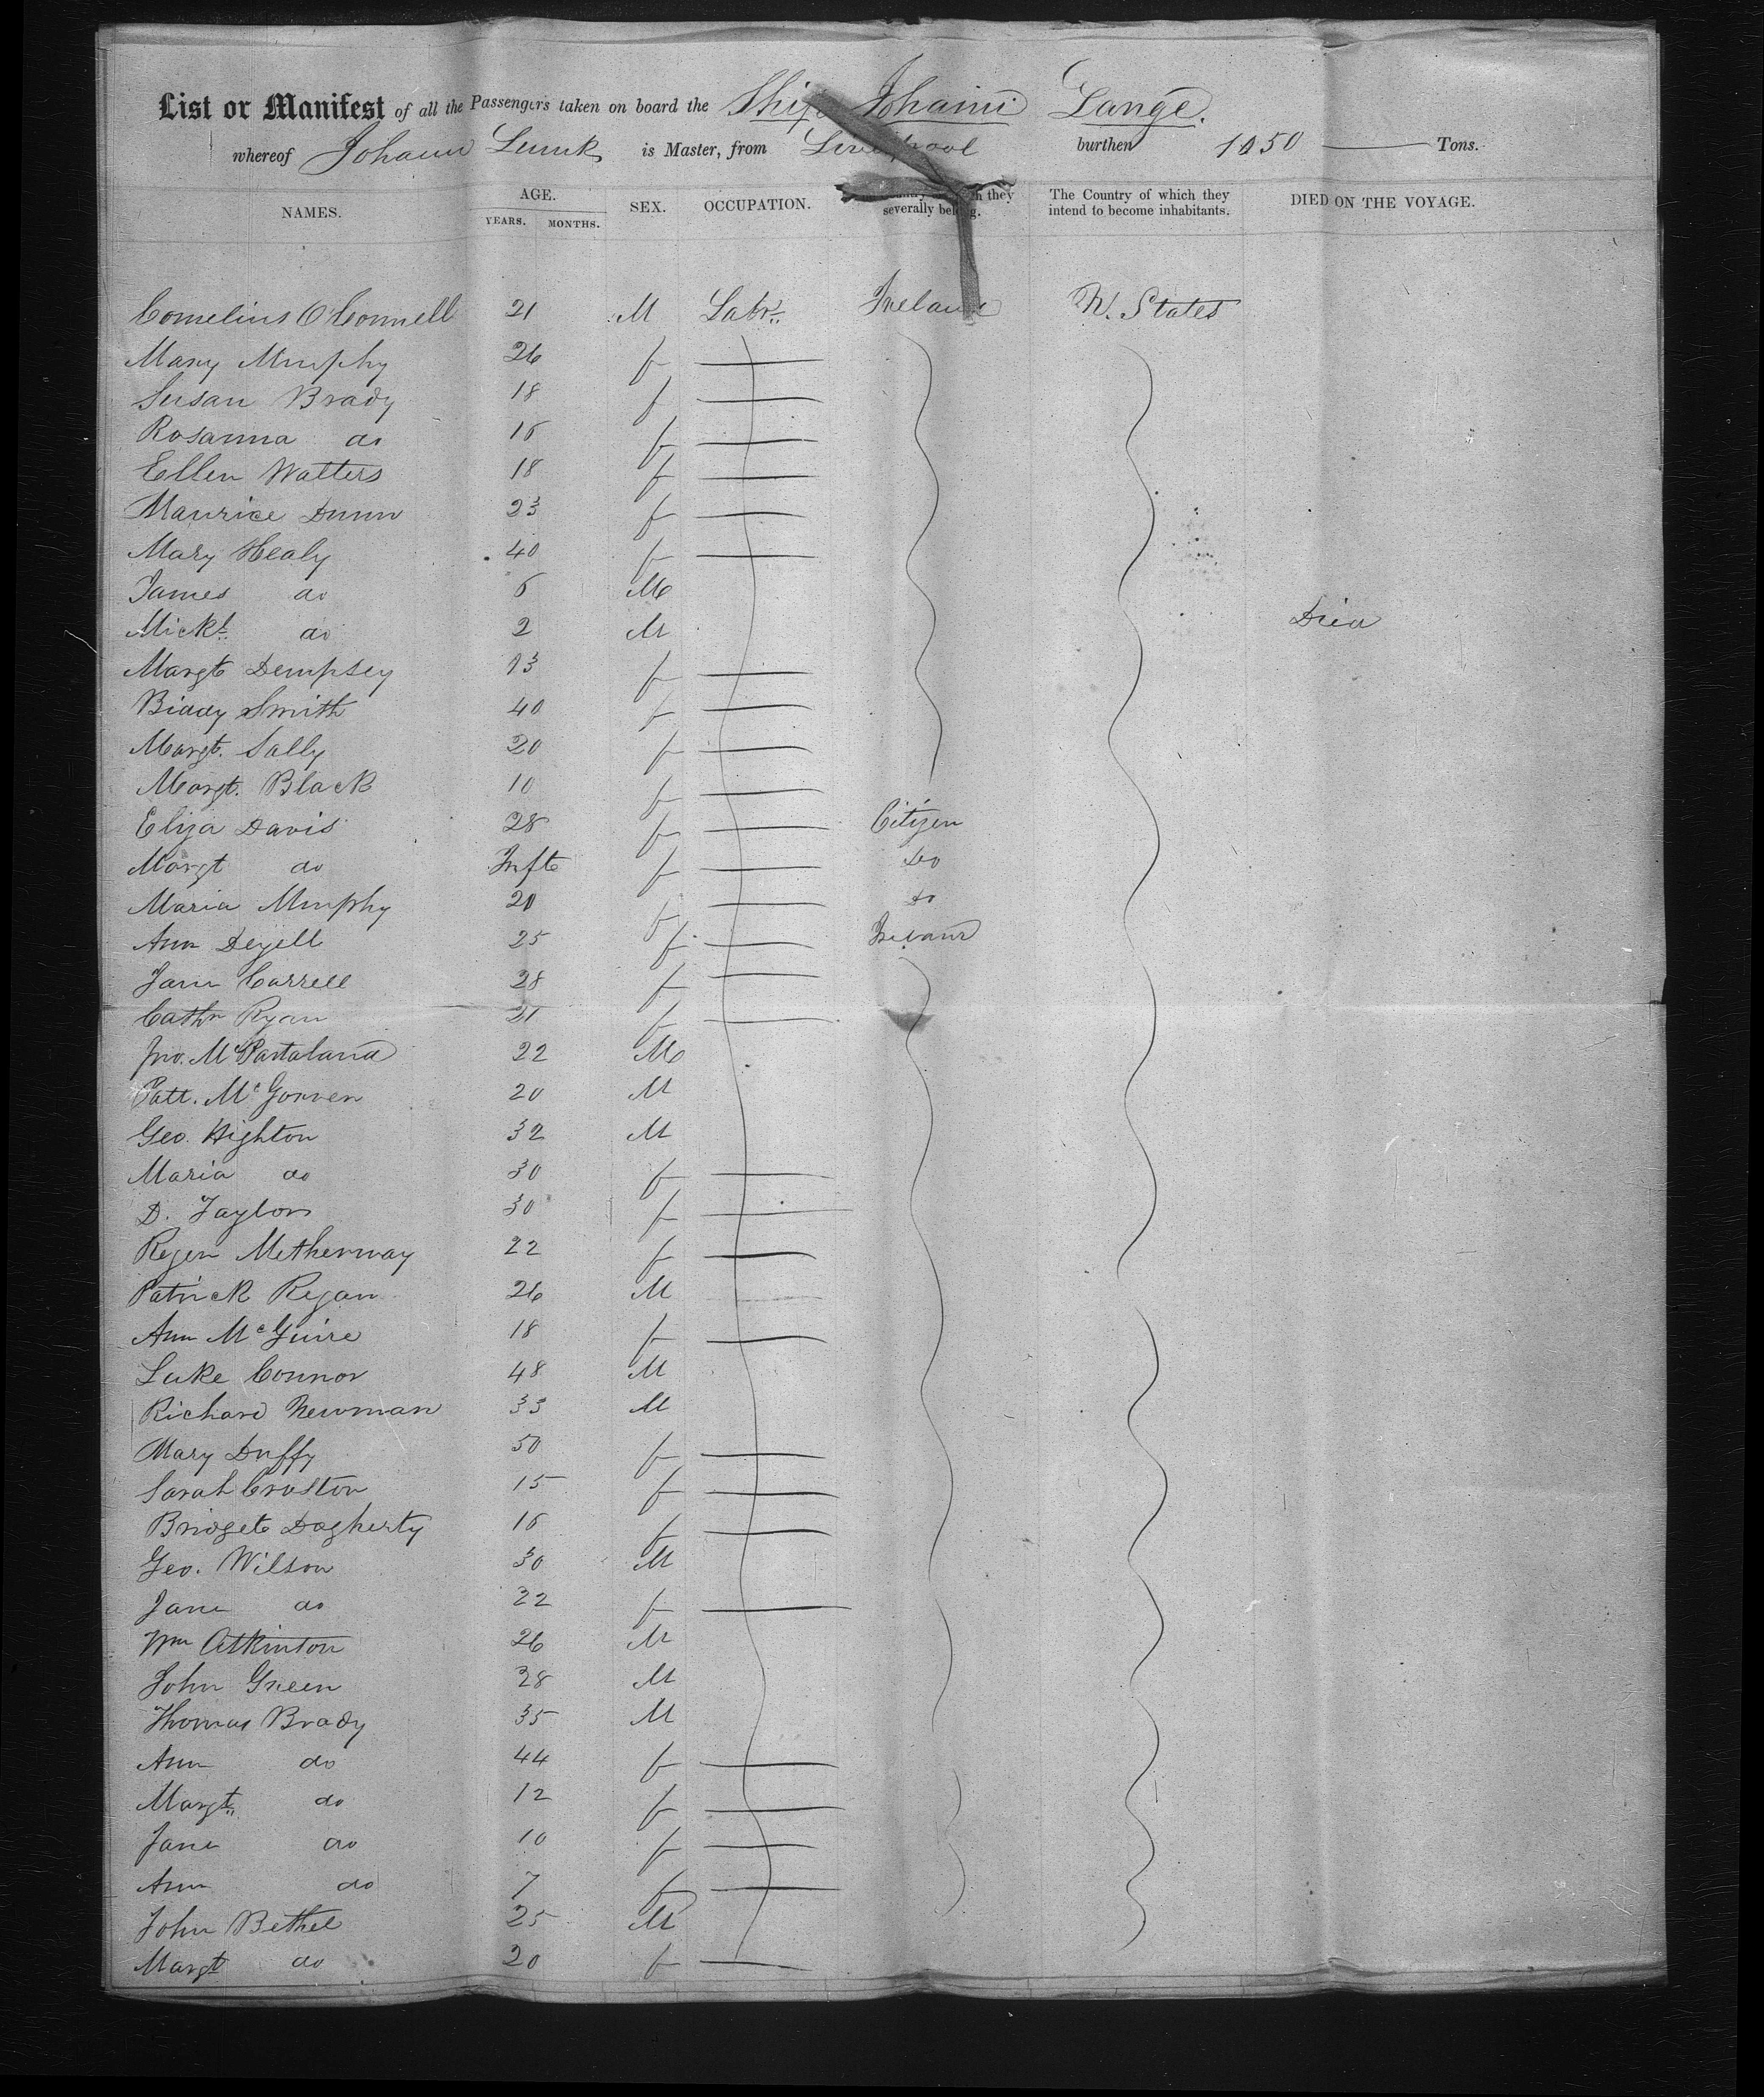 List or Manifest of all the Passengers taken on board the Ship Johann Lange.
whereof Johann is Master, from Liverpool burthen 1050 Tons.
NAMES. AGE. YEARS. MONTHS. SEX. OCCUPATION. they severally belong. The Country of which they intend to become inhabitants. DIED ON THE VOYAGE.
Cornelius O'Connell 21 M Labr. Ireland U. States
Mary Murphy 26 f
Susan Brady 18 f
Rosanna do 16 f
Ellen Walters 18 f
Maurice Dunn 23 f
Mary Healy 40 f
James do 6 M
Mickl. do 2 M Died
Margt Dempsey 13 f
Biddy Smith 40 f
Margt. Sally 20 f
Margt. Black 10 f
Eliza Davis 28 f Citizen
Margt do Inft f do
Maria Murphy 20 f do
Ann Deyell 25 f Ireland
Jann Carrell 28 f
Cathn Ryan 21 f
Jno. McPartaland 22 M
Patt. McGorven 20 M
Geo. Highton 32 M
Maria do 30 f
D. Taylor 30 f
Metherway 22 f
Patrick Ryan 26 M
Ann McGuire 18 f
Luke Connor 48 M
Richard Newman 33 M
Mary Duffy 50 f
Sarah Croston 15 f
Bridget Dogherty 16 f
Geo. Wilson 30 M
Jane do 22 f
Wm Atkinton 26 M
John Green 28 M
Thomas Brady 35 M
Ann do 44 f
Margt. do 12 f
Jane do 10 f
Ann do 7 f
John Bethel 25 M
Margt do 20 f